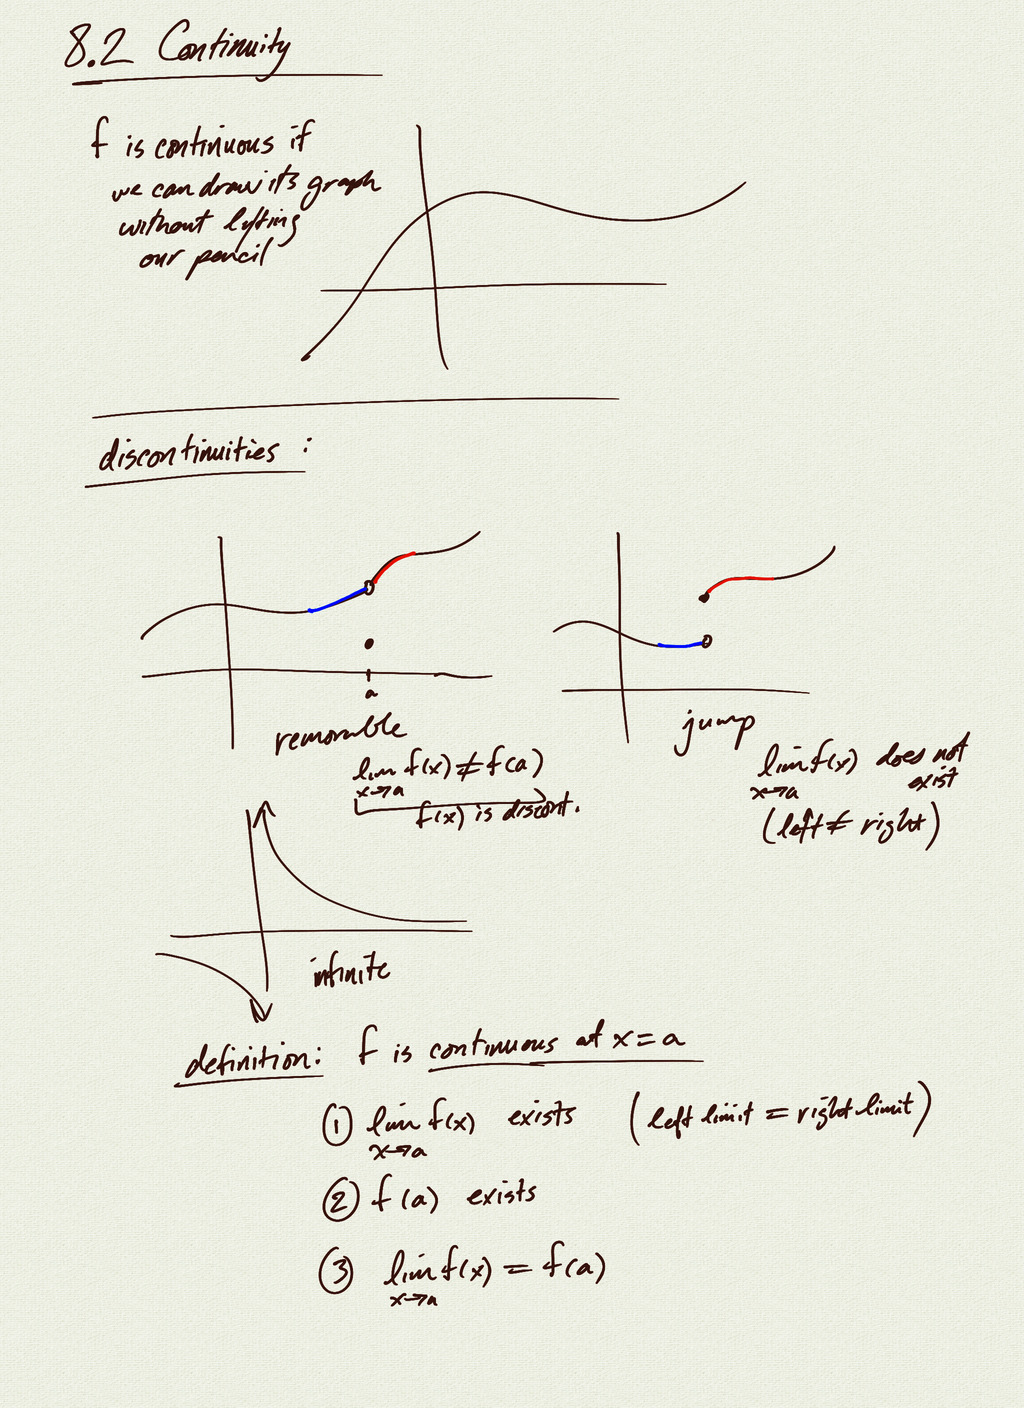 8.2 Continuity
f is continuous if
we can draw its graph
without lifting
our pencil
discontinuities :
a
removable
lim f(x) ≠ f(a)
x→a
f(x) is discont.
jump
lim f(x) does not
x→a exist
(left ≠ right)
infinite
definition: f is continuous at x = a
① lim f(x) exists (left limit = right limit)
x→a
② f(a) exists
③ lim f(x) = f(a)
x→a